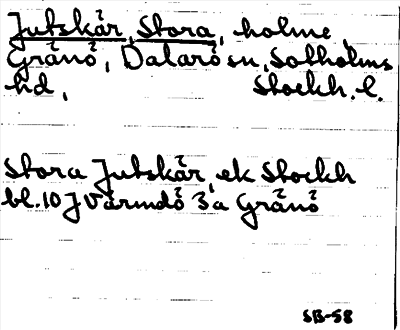 Jutskär, Stora, holme,
Gränö, Dalarö sn, Sotholms
hd, Stockh. l.
Stora Jutskär, ek Stockh
bl. 10 J Värmdö 3 a Gränö
SB-58